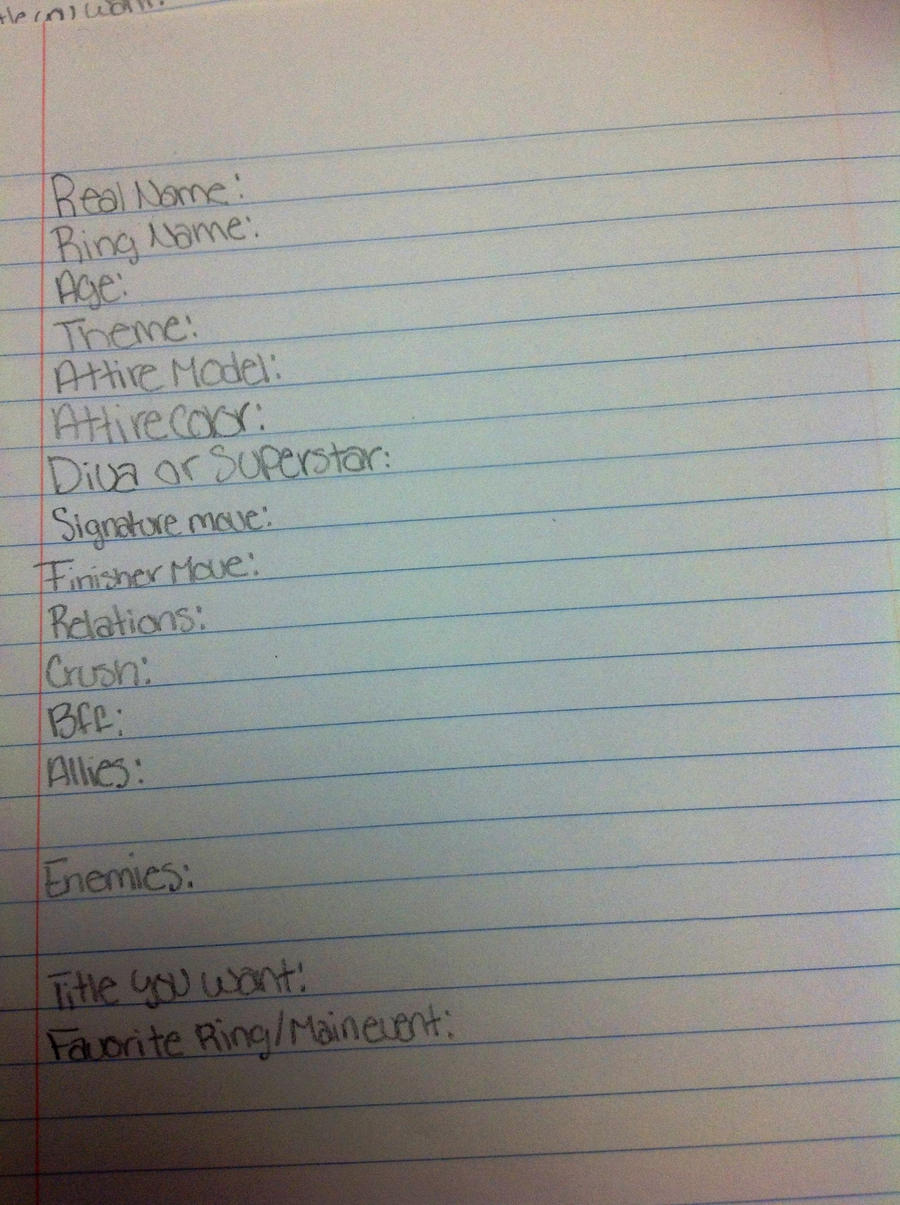 Real Name:
Ring Name:
Age:
Theme:
Attire Model:
Attire Color:
Diva or Superstar:
Signature move:
Finisher Move:
Relations:
Crush:
Bff:
Allies:
Enemies:
Title you want:
Favorite Ring/Mainevent: